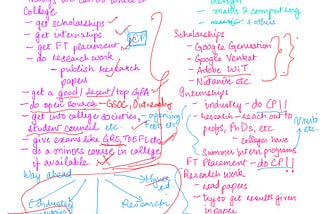 College
- get scholarships
- get internships
- get FT placement
CP
- do research work
- publish research
papers
- get a good/decent/top GPA
- do open source - GSOC, Outreachy
- get into college societies,
student council etc.
- give exams like GRE, TOEFL etc
- do a minors course in college
if available
Way ahead
Industry
Higher
Research
design
- maths & computing
- others
Scholarships
- Google Generation
- Google Venkat
- Adobe WIT
- Nutanix etc.
Internships
- industry - do CP!!
- Research - reach out to
profs, PhDs, etc
colleges have
Summer intern programs
FT Placement - do CP!!
Research work
- read papers
- try to get results given
in paper